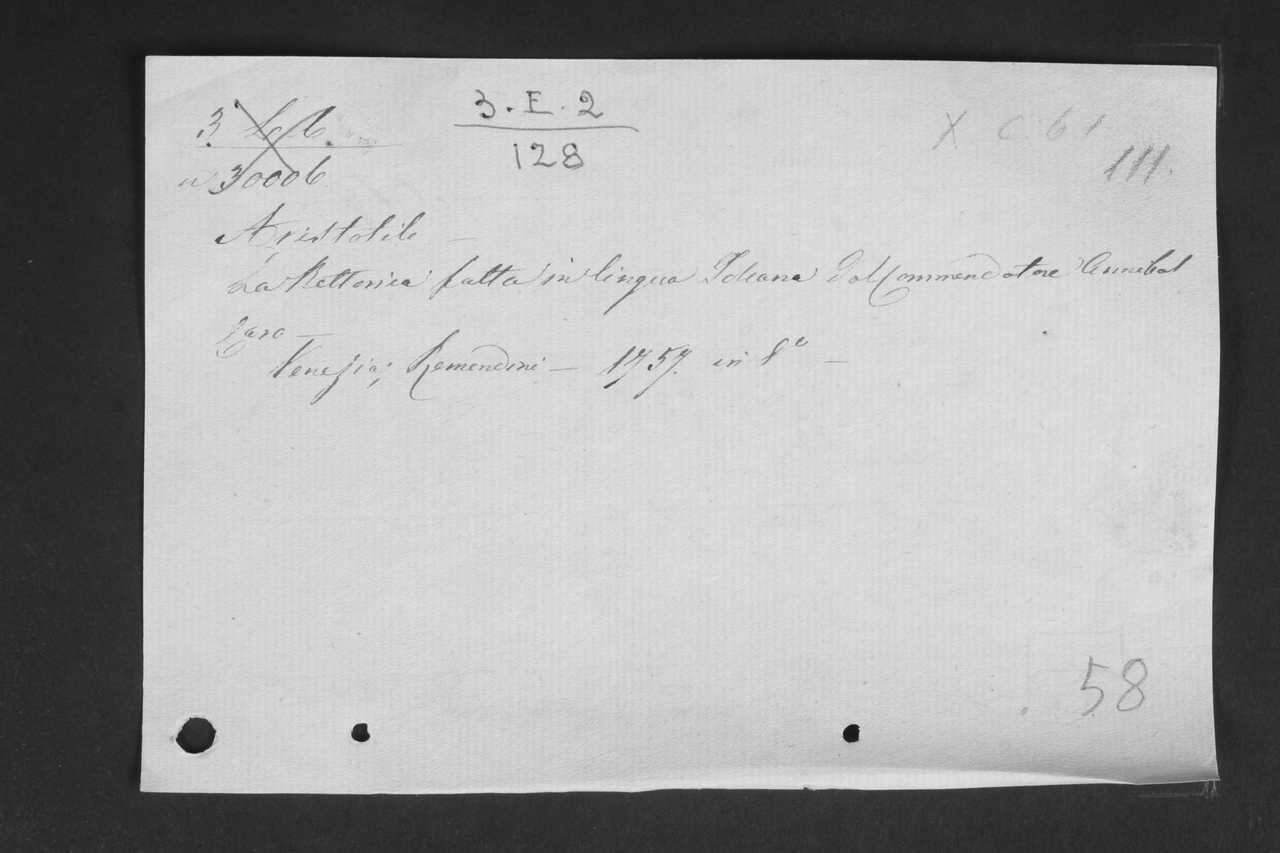 3. E. 2
128
X C 61
111.
n 30006
Aristotile —
La Rettorica fatta in lingua Toscana dal Commendatore Annibal
Caro —
Venezia; Remondini — 1757. in 8º —
58